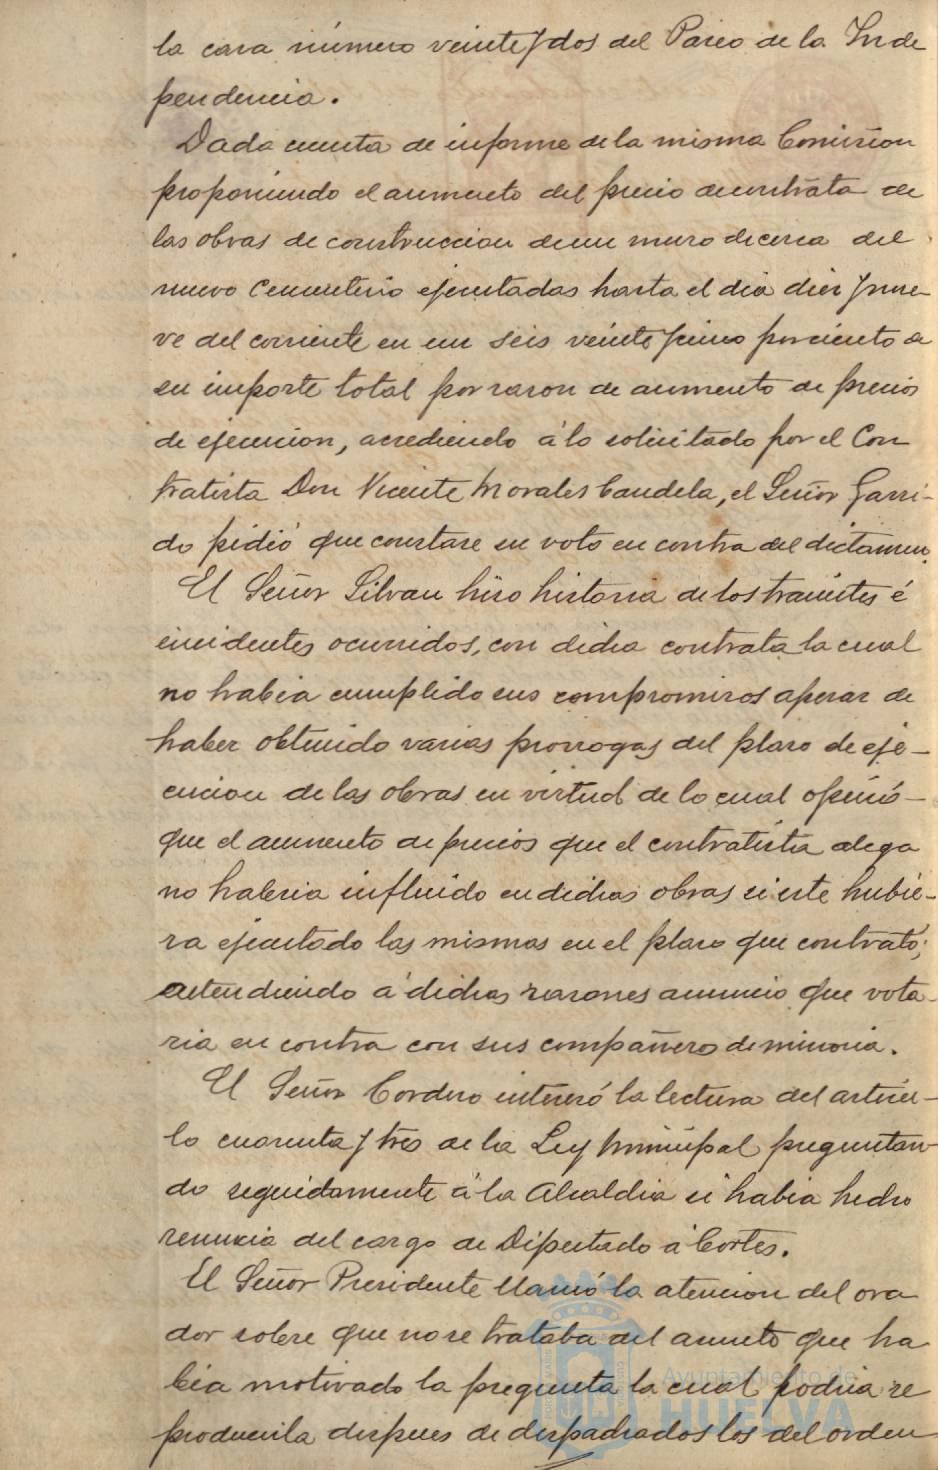 la casa número veinte y dos del Paseo de la Inde
pendencia.
Dada cuenta de informe de la misma Comision
proponiendo el aumento del precio de contrata de
las obras de construccion de un muro de cerca del
nuevo Cementerio ejecutadas hasta el dia diez y nue-
ve del corriente en un seis veinte y cinco por ciento de
su importe total por razon de aumento de precios
de ejecucion, accediendo á lo solicitado por el Con
tratista Don Vicente Morales Candela, el Señor Garri-
do pidió que constase su voto en contra del dictamen.
El Señor Silvan hizo historia de los tramites é
incidentes ocurridos, con dicha contrata la cual
no habia cumplido sus compromisos apesar de
haber obtenido varias prorrogas del plazo de eje-
cucion de las obras en virtud de lo cual opinó-
que el aumento de precios que el contratista alega
no haberia influido en dichas obras si este hubie-
ra ejecutado las mismas en el plazo que contrató;
atendiendo á dichas razones anuncio que vota
ria en contra con sus compañeros de minoria.
El Señor Cordero interesó la lectura del articu-
lo cuarenta y tres de la Ley Municipal preguntan-
do seguidamente á la Alcaldia si habia hecho
renuncia del cargo de Diputado á Cortes.
El Señor Presidente llamó la atencion del ora
dor sobre que no se trataba del asunto que ha
bia motivado la pregunta la cual podria re
producirla despues de despachados los del orden
Ayuntamiento de
HUELVA